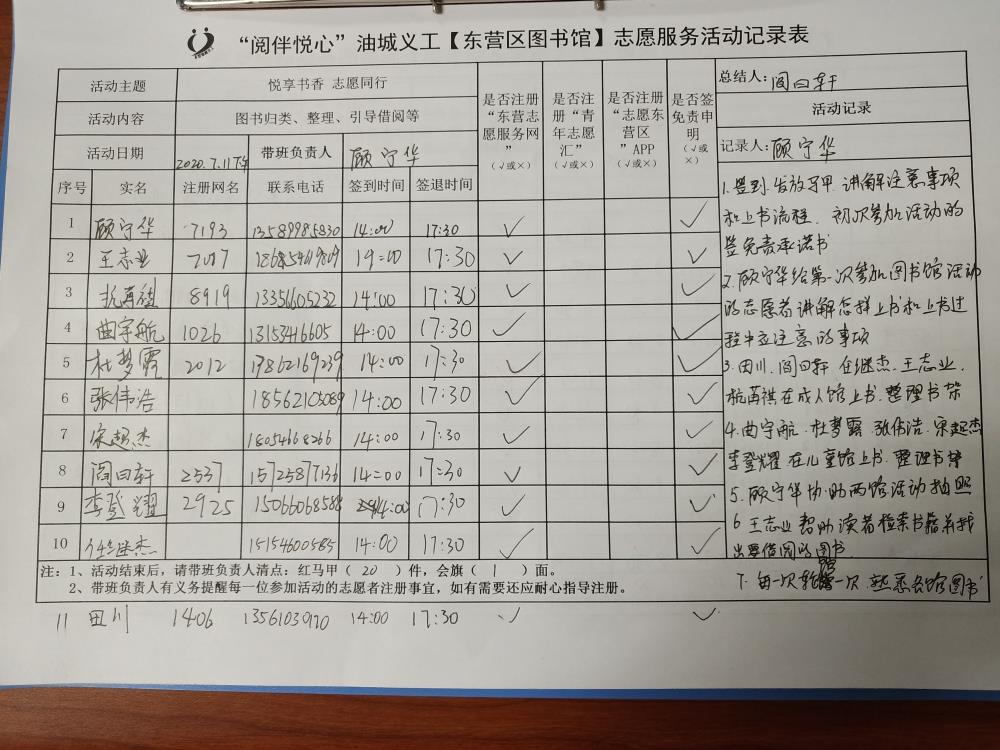 “阅伴悦心”油城义工【东营区图书馆】志愿服务活动记录表
活动主题 悦享书香 志愿同行
活动内容 图书归类、整理、引导借阅等
活动日期 2020.7.11下午 带班负责人 顾宁华
是否注册“东营志愿服务网” (√或×)
是否注册“青年志愿汇” (√或×)
是否注册“志愿东营区”APP (√或×)
是否签免责申明 (√或×)
总结人: 阎曰轩
活动记录
记录人: 顾宁华
序号 实名 注册网名 联系电话 签到时间 签退时间
1 顾宁华 7193 13589985830 14:00 17:30 √ √
2 王志业 7007 14:00 17:30 √ √
3 杭苒祺 8919 13356605232 14:00 17:30 √ √
4 曲宇航 1026 13153416605 14:00 17:30 √ √
5 杜梦露 2012 17862169239 14:00 17:30 √ √
6 张伟浩 18562105089 14:00 17:30 √ √
7 宋超杰 18054668266 14:00 17:30 √ √
8 阎曰轩 2537 15725877136 14:00 17:30 √ √
9 李登耀 2925 15066068588 14:00 17:30 √ √
10 任继杰 15154600585 14:00 17:30 √ √
注:1、活动结束后,请带班负责人清点:红马甲( 20 )件,会旗( 1 )面。
2、带班负责人有义务提醒每一位参加活动的志愿者注册事宜,如有需要还应耐心指导注册。
11 田川 1406 13561030170 14:00 17:30 √ √
1.签到.发放马甲.讲解注意事项
和上书流程、初次参加活动的
签免责承诺书
2.顾宁华给第一次参加图书馆活动
的志愿者讲解怎样上书和上书过
程中应注意的事项
3.田川、阎曰轩 任继杰、王志业、
杭苒祺在成人馆上书.整理书架
4.曲宇航.杜梦露.张伟浩.宋超杰
李登耀在儿童馆上书.整理书架
5.顾宁华协助两馆活动拍照
6 王志业帮助读者检索书籍并找
出要借阅的图书
7.每一次 一次 熟悉各馆图书